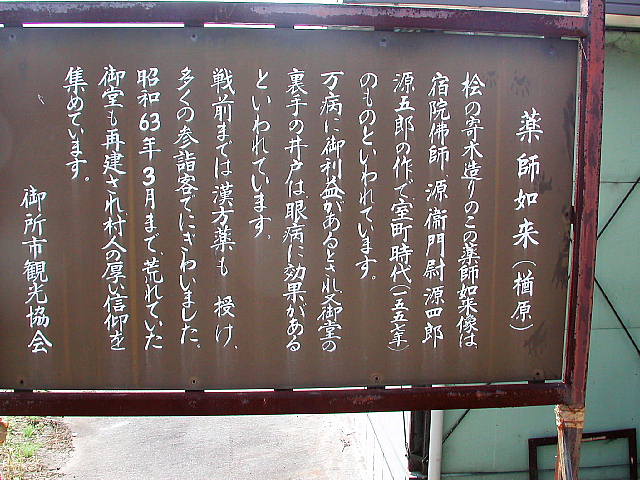 薬師如来（楢原）
桧の寄木造りのこの薬師如来像は
宿院佛師、源衛門尉源四郎
源五郎の作で室町時代（一五五七年）
のものといわれています。
万病に御利益があるとされ又御堂の
裏手の井戸は眼病に効果がある
といわれています。
戦前までは漢方薬も授け、
多くの参詣客でにぎわいました。
昭和63年3月まで荒れていた
御堂も再建され村人の厚い信仰を
集めています。
御所市観光協会